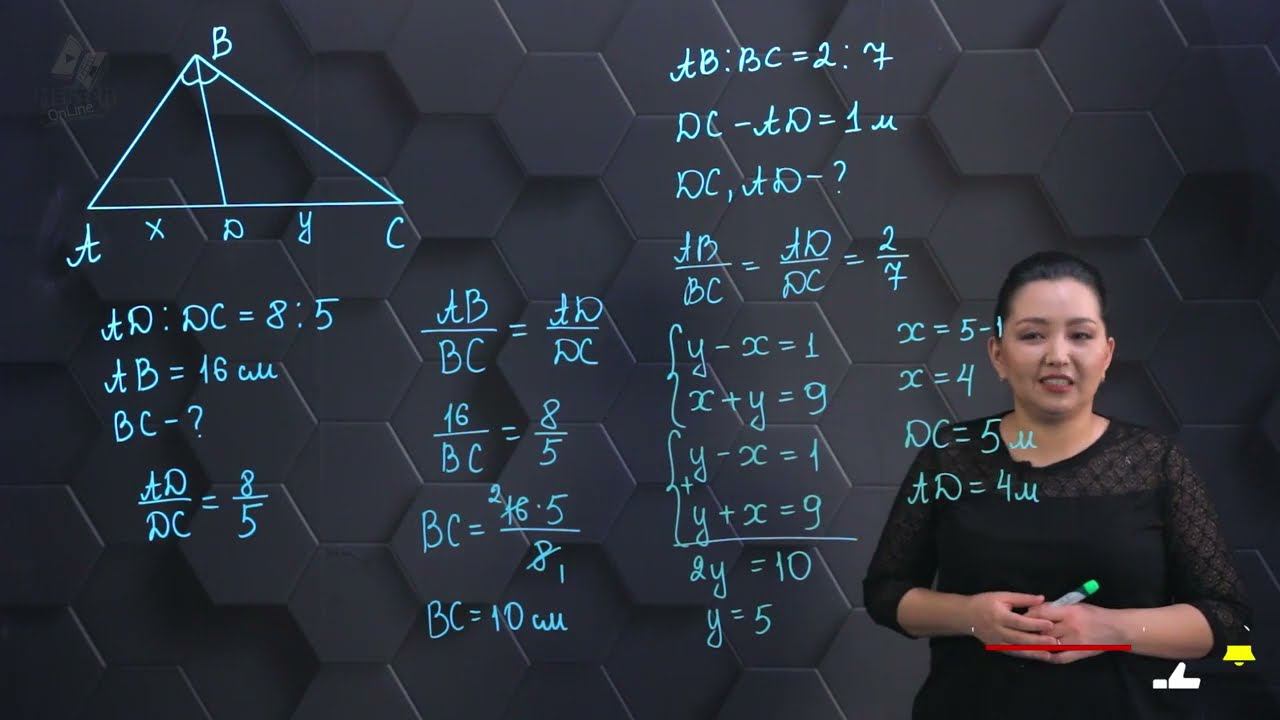 OnLine
B
A x D y C
AD : DC = 8 : 5
AB = 16 см
BC - ?
AD/DC = 8/5
AB/BC = AD/DC
16/BC = 8/5
BC = 2 16 · 5 / 8 1
BC = 10 см
AB : BC = 2 : 7
DC - AD = 1 м
DC, AD - ?
AB/BC = AD/DC = 2/7
{ y - x = 1
x + y = 9
{ y - x = 1
+
y + x = 9
2y = 10
y = 5
x = 5 - 1
x = 4
DC = 5 м
AD = 4 м